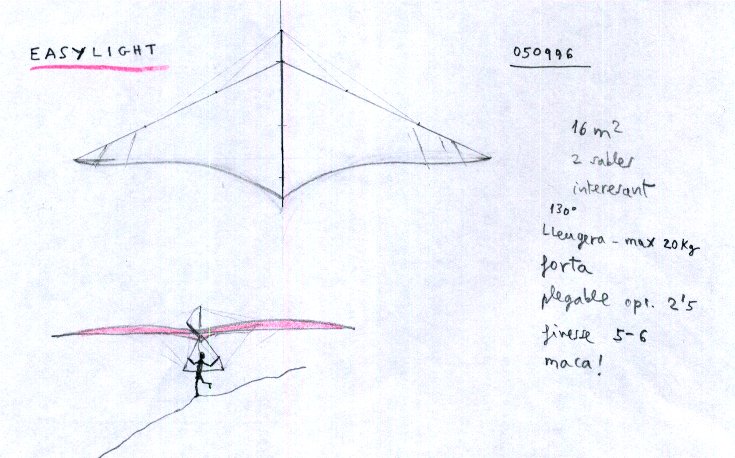 EASYLIGHT
050996
16 m²
2 sables
interesant
130°
Lleugera - max 20 Kg
forta
plegable opt. 2'5
finesse 5-6
maca!